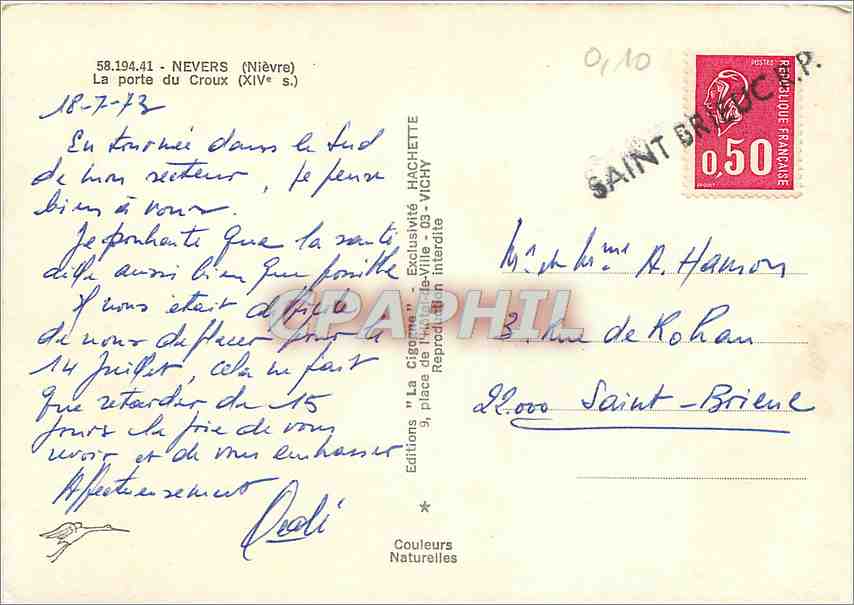 58.194.41 - NEVERS (Nièvre)
La porte du Croux (XIVe s.)
18-7-73
En tournée dans le Sud
de mon secteur, je pense
bien à vous.
Je souhaite que la santé
aille aussi bien que possible
Il nous était difficile
de nous déplacer pour le
14 Juillet, cela ne fait
que retarder de 15
jours la joie de vous
revoir et de vous embrasser
Affectueusement
Editions "La Cigogne" - Exclusivité HACHETTE
9, place de l'Hôtel-de-Ville - 03 - VICHY
Reproduction interdite
*
Couleurs
Naturelles
0,10
POSTES
REPUBLIQUE FRANÇAISE
0,50
SAINT BRIEUC R.P.
Mr et Mme A. Hamon
3. Rue de Rohan
22.000 Saint-Brieuc
CPAPHIL